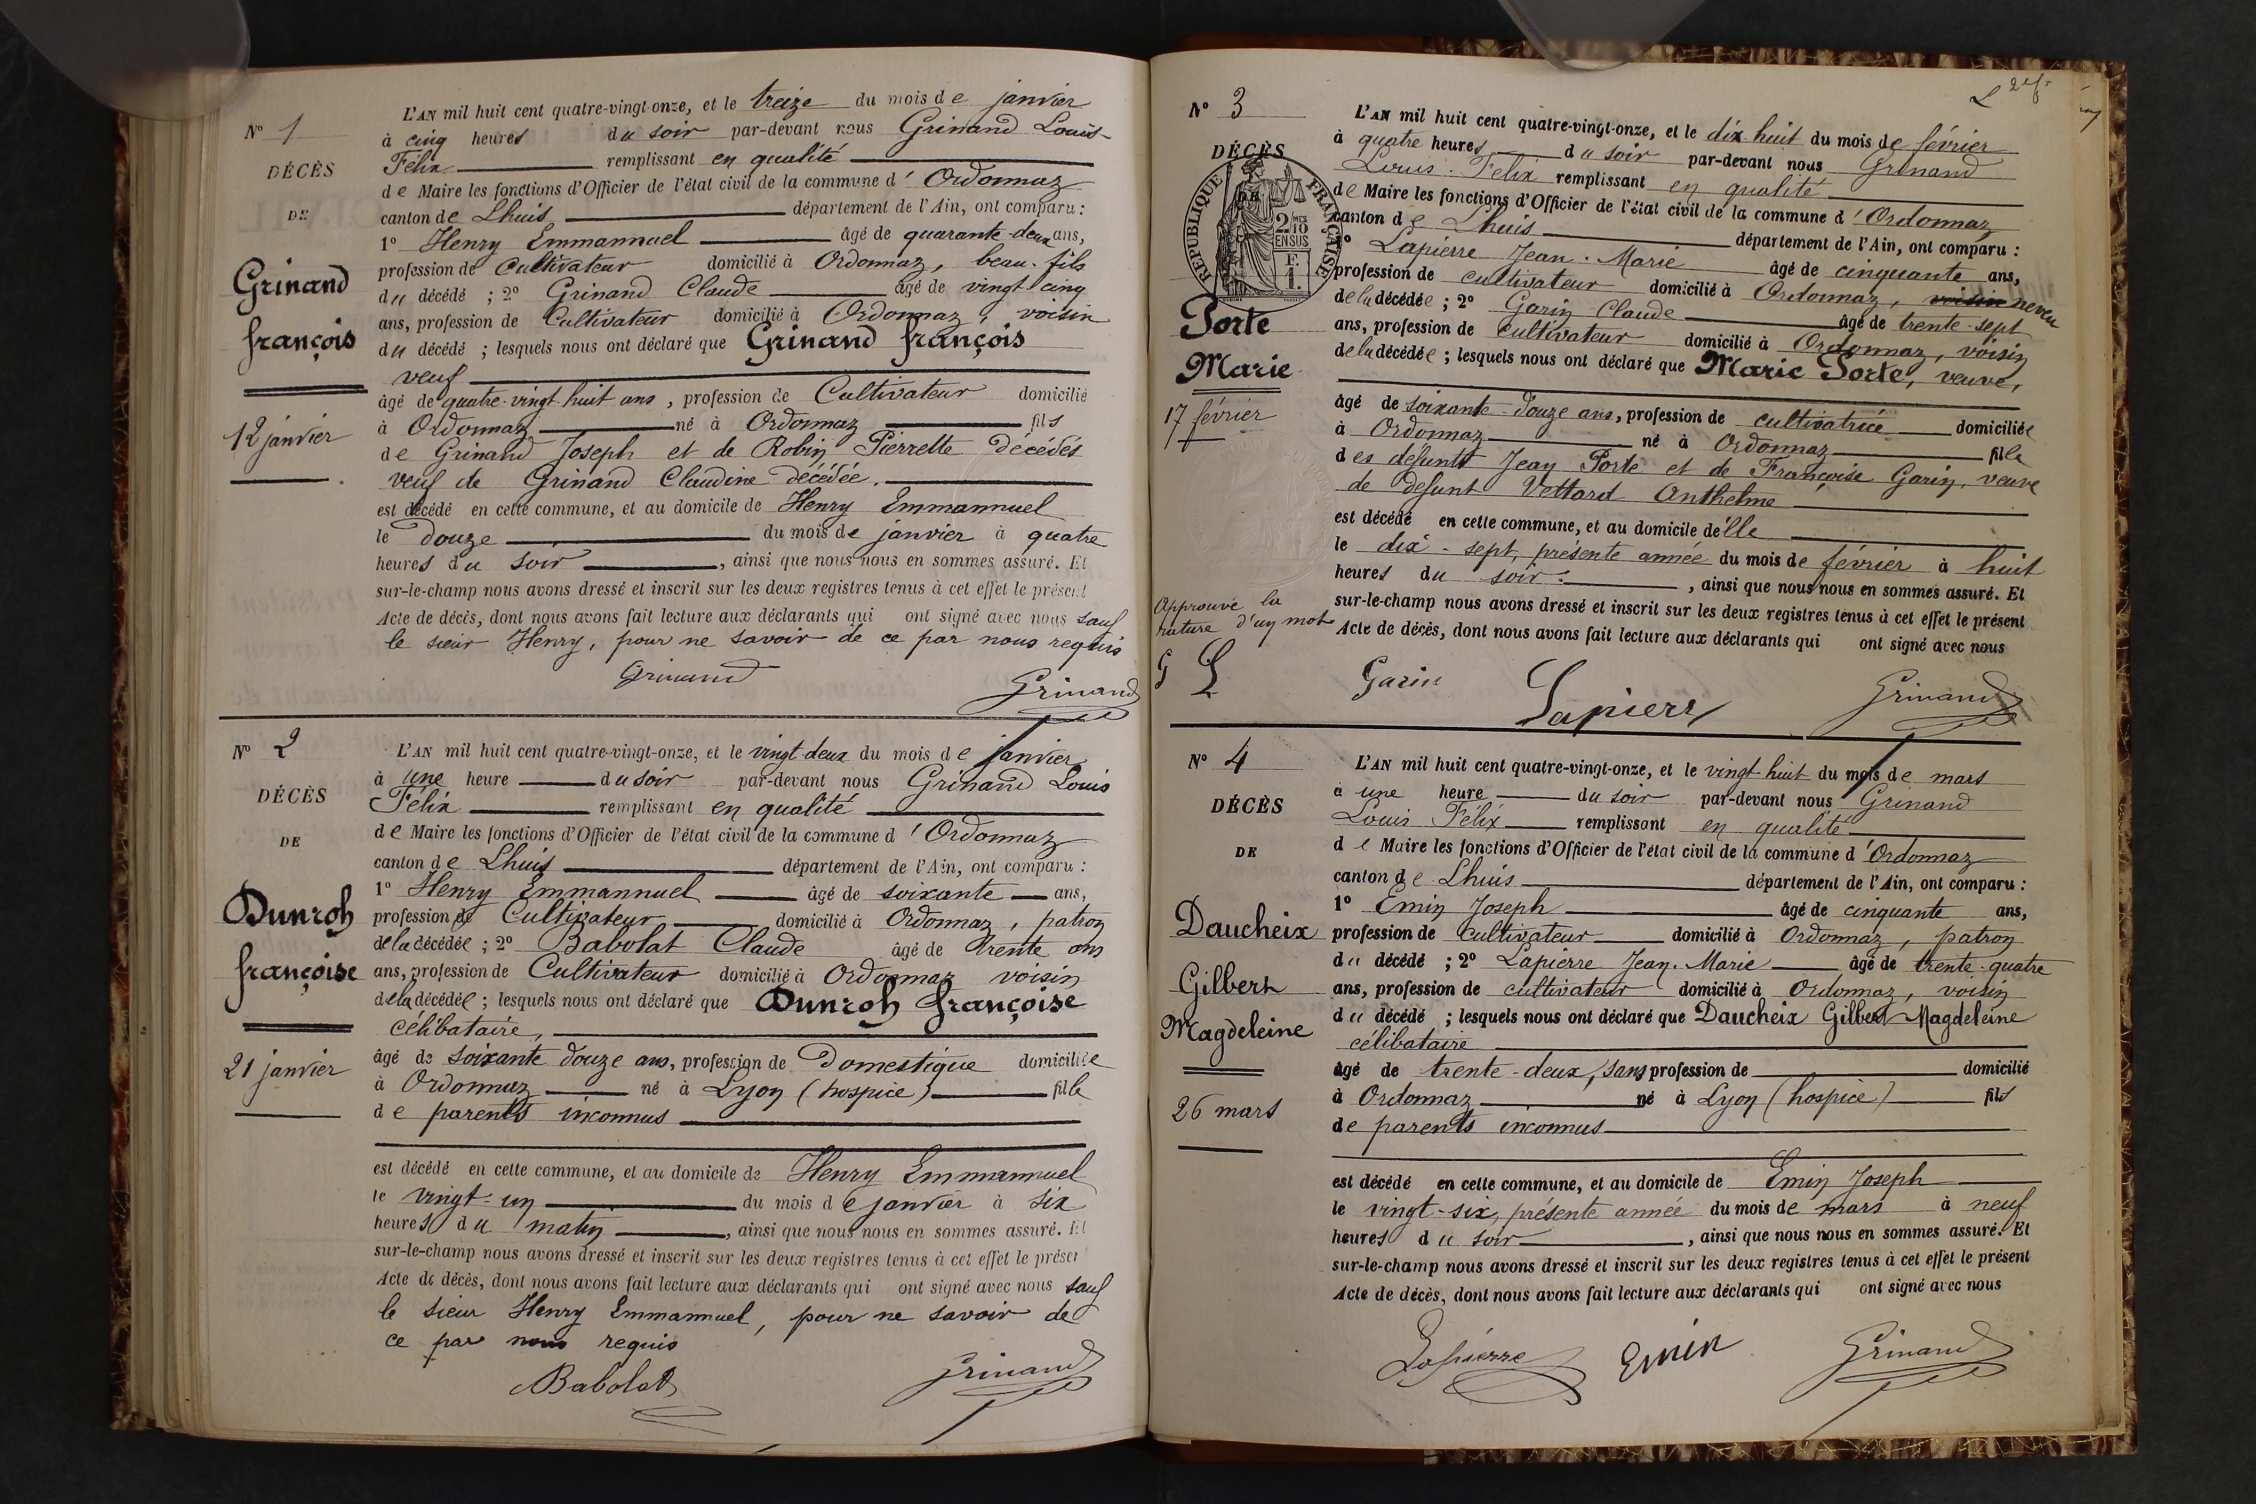 N° 1
DÉCÈS
DE
Grinand
françois
12 janvier
L'AN mil huit cent quatre-vingt-onze, et le treize du mois de janvier
à cinq heures du soir par-devant nous Grinand Louis-
Félix remplissant en qualité
de Maire les fonctions d'Officier de l'état civil de la commune d'Ordonnaz
canton de Lhuis département de l'Ain, ont comparu :
1° Henry Emmannuel âgé de quarante-deux ans,
profession de Cultivateur domicilié à Ordonnaz, beau-fils
du décédé ; 2° Grinand Claude âgé de vingt cinq
ans, profession de Cultivateur domicilié à Ordonnaz, voisin
du décédé ; lesquels nous ont déclaré que Grinand françois
veuf
âgé de quatre-vingt-huit ans, profession de Cultivateur domicilié
à Ordonnaz né à Ordonnaz fils
de Grinand Joseph et de Robin Pierrette décédés
veuf de Grinand Claudine décédée.
est décédé en cette commune, et au domicile de Henry Emmannuel
le douze du mois de janvier à quatre
heures du soir, ainsi que nous nous en sommes assuré. Et
sur-le-champ nous avons dressé et inscrit sur les deux registres tenus à cet effet le présent
Acte de décès, dont nous avons fait lecture aux déclarants qui ont signé avec nous sauf
le sieur Henry, pour ne savoir de ce par nous requis
Grinand Grinand
N° 2
DÉCÈS
DE
Dunroh
françoise
21 janvier
L'AN mil huit cent quatre-vingt-onze, et le vingt-deux du mois de janvier
à une heure du soir par-devant nous Grinand Louis
Félix remplissant en qualité
de Maire les fonctions d'Officier de l'état civil de la commune d'Ordonnaz
canton de Lhuis département de l'Ain, ont comparu :
1° Henry Emmannuel âgé de soixante ans,
profession de Cultivateur domicilié à Ordonnaz, patron
de la décédée ; 2° Babolat Claude âgé de trente ans
ans, profession de Cultivateur domicilié à Ordonnaz voisin
de la décédée ; lesquels nous ont déclaré que Dunroh françoise
célibataire,
âgé de soixante douze ans, profession de Domestique domiciliée
à Ordonnaz né à Lyon (hospice) fille
de parents inconnus
est décédé en cette commune, et au domicile de Henry Emmannuel
le vingt-un du mois de janvier à six
heures du matin, ainsi que nous nous en sommes assuré. Et
sur-le-champ nous avons dressé et inscrit sur les deux registres tenus à cet effet le présent
Acte de décès, dont nous avons fait lecture aux déclarants qui ont signé avec nous sauf
le sieur Henry Emmannuel, pour ne savoir de
ce par nous requis
Babolat Grinand
N° 3
DÉCÈS
DE
RÉPUBLIQUE FRANÇAISE
2/10 EN SUS
F. 1.
Porte
Marie
17 février
Approuvé la
rature d'un mot
G L
L'AN mil huit cent quatre-vingt-onze, et le dix-huit du mois de février
à quatre heures du soir par-devant nous Grinand
Louis-Félix remplissant en qualité
de Maire les fonctions d'Officier de l'état civil de la commune d'Ordonnaz
canton de Lhuis département de l'Ain, ont comparu :
1° Lapierre Jean-Marie âgé de cinquante ans,
profession de cultivateur domicilié à Ordonnaz, voisin neveu
de la décédée ; 2° Garin Claude âgé de trente-sept
ans, profession de Cultivateur domicilié à Ordonnaz, voisin
de la décédée ; lesquels nous ont déclaré que Marie Porte, veuve,
âgé de soixante-douze ans, profession de cultivatrice domiciliée
à Ordonnaz né à Ordonnaz fille
des defunts Jean Porte et de Françoise Garin, veuve
de defunt Vettard Anthelme
est décédé en cette commune, et au domicile d'elle
le dix-sept, présente année du mois de février à huit
heures du soir, ainsi que nous nous en sommes assuré. Et
sur-le-champ nous avons dressé et inscrit sur les deux registres tenus à cet effet le présent
Acte de décès, dont nous avons fait lecture aux déclarants qui ont signé avec nous
Garin Lapierre Grinand
N° 4
DÉCÈS
DE
Daucheix
Gilbert
Magdeleine
26 mars
L'AN mil huit cent quatre-vingt-onze, et le vingt huit du mois de mars
à une heure du soir par-devant nous Grinand
Louis Félix remplissant en qualité
de Maire les fonctions d'Officier de l'état civil de la commune d'Ordonnaz
canton de Lhuis département de l'Ain, ont comparu :
1° Emin Joseph âgé de cinquante ans,
profession de cultivateur domicilié à Ordonnaz, patron
du décédé ; 2° Lapierre Jean-Marie âgé de trente-quatre
ans, profession de cultivateur domicilié à Ordonnaz, voisin
du décédé ; lesquels nous ont déclaré que Daucheix Gilbert Magdeleine
célibataire
âgé de trente-deux, sans profession de domicilié
à Ordonnaz né à Lyon (hospice) fils
de parents inconnus
est décédé en cette commune, et au domicile de Emin Joseph
le vingt-six, présente année du mois de mars à neuf
heures du soir, ainsi que nous nous en sommes assuré. Et
sur-le-champ nous avons dressé et inscrit sur les deux registres tenus à cet effet le présent
Acte de décès, dont nous avons fait lecture aux déclarants qui ont signé avec nous
Lapierre Emin Grinand